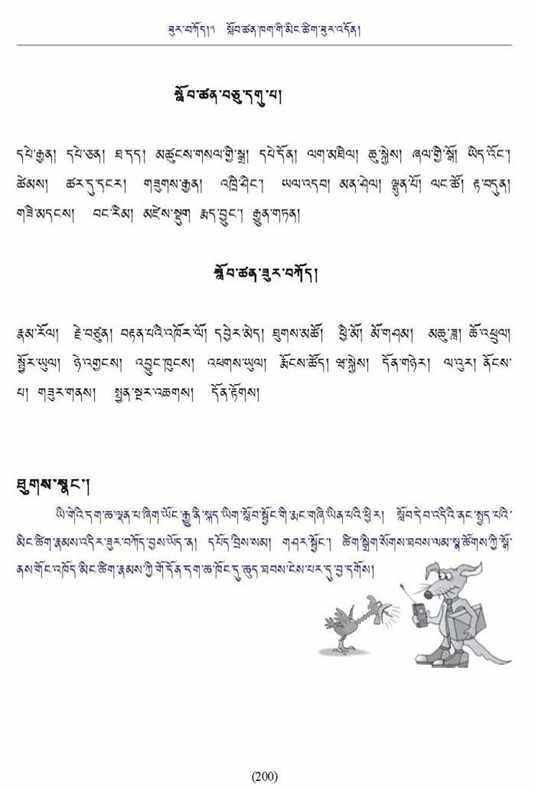 ཟུར་བཀོད།༡ སློབ་ཚན་ཁག་གི་མིང་ཚིག་ཟུར་འདོན།
སློབ་ཚན་བཅུ་དགུ་པ།
དཔེ་རྒྱན། དཔེ་ཅན། ཐ་དད། མཚུངས་གསལ་གྱི་སྒྲ། དཔེ་དོན། ལག་མཐིལ། ཆུ་སྐྱེས། ཞལ་གྱི་སྒོ། ཡིད་འོང་།
ཚེམས། ཚར་དུ་དངར། གཟུགས་རྒྱན། འཁྲི་ཤིང་། ཡལ་འདབ། མན་ཤེལ། ལྷུན་པོ། ལང་ཚོ། རྟ་བདུན།
གཟི་མདངས། བང་རིམ། མཛེས་སྡུག རྨད་བྱུང་། རྒྱུན་གཏན།
སློབ་ཚན་ཟུར་བཀོད།
རྣམ་རོལ། རྗེ་བཙུན། བརྟན་པའི་འཁོར་ལོ། དབྱེར་མེད། ཐུགས་མཚོ། ཕྱི་མོ། མོ་གཤམ། མཆུ་ཟླ། ཆོ་འཕྲུལ།
སྤྱོར་ཡུལ། ཉེ་འགྱངས། འབྱུང་ཁུངས། འཕགས་ཡུལ། རྨོངས་ཚོད། ཝ་སྐྱེས། དོན་གཉེར། ལ་འུར། ནོངས་
པ། གཟུར་གནས། སྤྱན་སྔར་འཆགས། དོན་རྟོགས།
ཐུགས་སྣང་།
ཡི་གེའི་དག་ཆ་ལྡན་པ་ཞིག་ཡོང་རྒྱུ་ནི་སྐད་ཡིག་སློབ་སྦྱོང་གི་རྨང་གཞི་ཡིན་པའི་ཕྱིར། སློབ་དེབ་འདིའི་ནང་སྤྱད་པའི་
མིང་ཚིག་རྣམས་འདིར་ཟུར་བཀོད་བྱས་ཡོད་ན། དཔོད་བྲིས་སམ། གཤར་སྦྱོང་། ཚིག་སྒྲིག་སོགས་ཐབས་ལམ་སྣ་ཚོགས་ཀྱི་སྒོ་
ནས་གོང་འཁོད་མིང་ཚིག་རྣམས་ཀྱི་གོ་དོན་དག་ཆ་ཁོང་དུ་ཆུད་ཐབས་ངེས་པར་དུ་བྱ་དགོས།
(200)